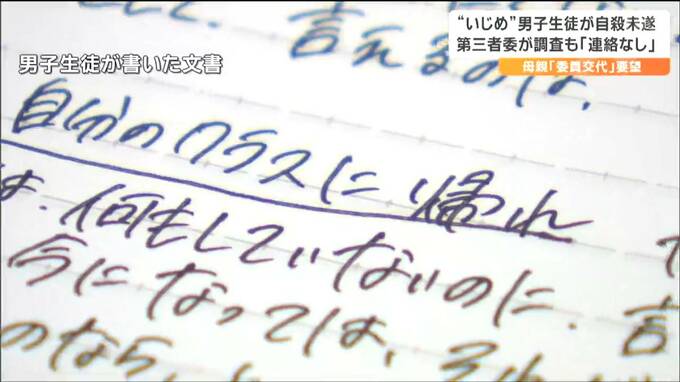 “いじめ”男子生徒が自殺未遂
第三者委が調査も「連絡なし」
母親「委員交代」要望
男子生徒が書いた文書
言えるのは、
自分のクラスに帰れ
は、何もしていないのに、言
今になっては、それ
のなら、